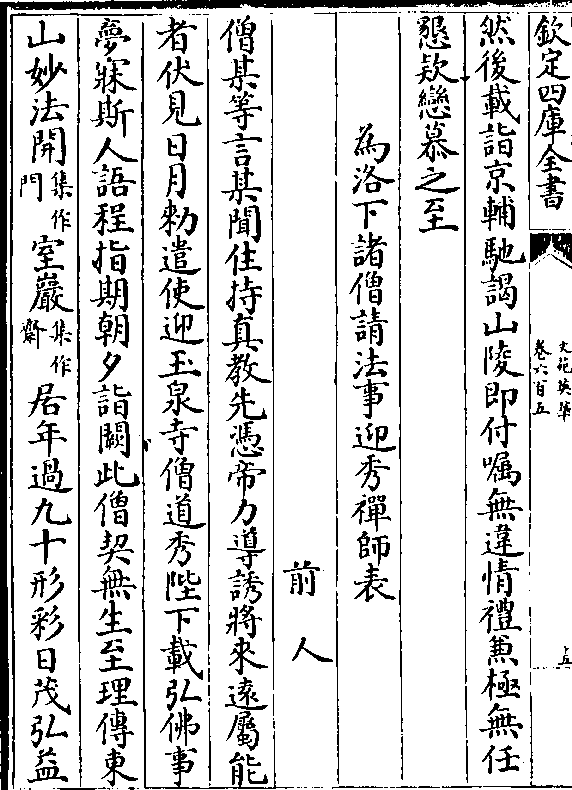 欽定四庫全書
文苑英華
卷六百五
十五
然後載詣京輔馳謁山陵即付囑無違情禮兼極無任
懇欵戀慕之至
為洛下諸僧請法事迎秀禪師表
前人
僧某等言某聞住持真教先憑帝力導誘將來遠屬能
者伏見日月勅遣使迎玉泉寺僧道秀陛下載弘佛事
夢寐斯人語程指期朝夕詣闕此僧契無生至理傳東
山妙法開集作門室巖集作齋居年過九十形彩日茂弘益